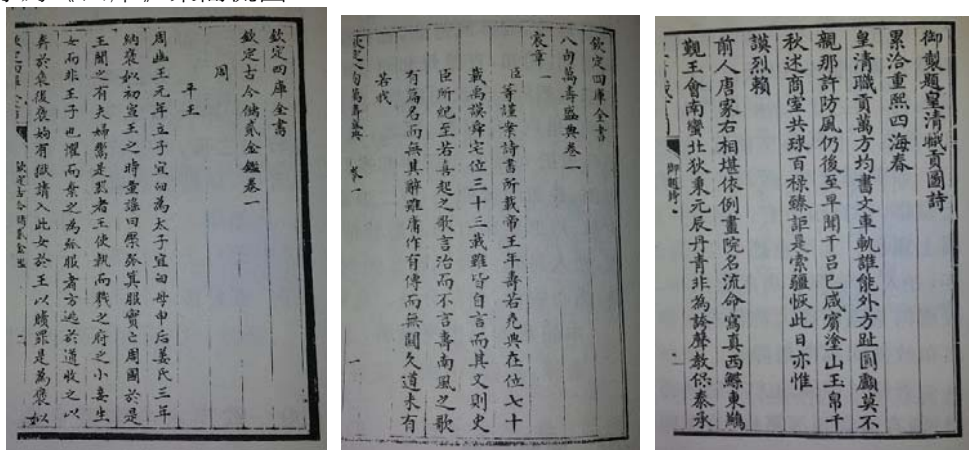 欽定四庫全書
欽定古今儲貳金鑑卷一
周
平王
周幽王元年立子宜臼為太子宜臼母申后姜氏三年
納褒姒初宣王之時童謠曰檿弧箕服實亡周國於是
王聞之有夫婦鬻是器者王使執而戮之府之小妾生
女而非王子也懼而棄之為弧服者方逃於道收之以
奔於褒後褒姁有獄請入此女於王以贖罪是為褒姒
欽定古今儲貳金鑑
欽定四庫全書
八旬萬壽盛典卷一
宸章一
臣等謹案詩書所載帝王年壽若堯典在位七十
載禹謨舜宅位三十三載雖皆自言而其文則史
臣所紀至若喜起之歌言治而不言壽南風之歌
有篇名而無其辭雖庸作有傳而無聞久道未有
若我
欽定八旬萬壽盛典
卷一
一
御製題皇清職貢圖詩
累洽重熙四海春
皇清職貢萬方均書文車軌誰能外方趾圓顱莫不
親那許防風仍後至早聞干呂已咸賓塗山玉帛千
秋述商室共球百祿臻詎是索疆恢此日亦惟
謨烈賴
前人唐家右相堪依例畫院名流命寫真西鰈東鶼
覲王會南蠻北狄秉元辰丹青非為誇聲教保泰承